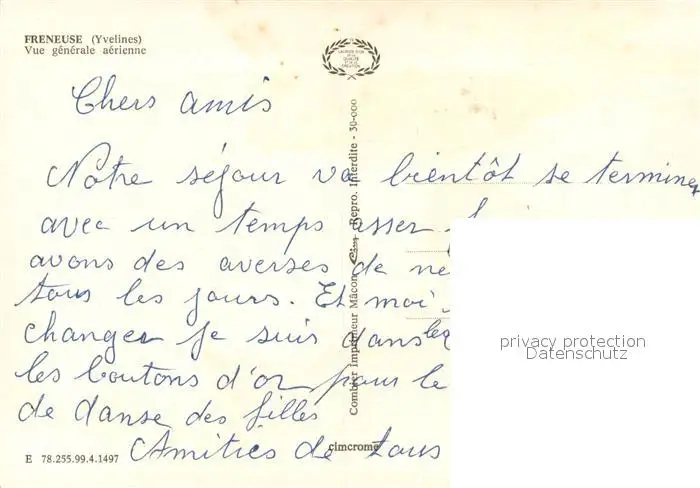 FRENEUSE (Yvelines)
Vue générale aérienne
LAURIER D'OR
DE LA
QUALITÉ
DE LA
CRÉATION
Chers amis
Notre séjour va bientôt se terminer
avec un temps asser
avons des averses de ne
tous les jours. Et moi
changer je suis dans les
les boutons d'or pour le
de danse des filles
Amitiés de tous
Combier Imprimeur Mâcon Cim Repro. Interdite - 30-000
cimcrome
E 78.255.99.4.1497
privacy protection
Datenschutz